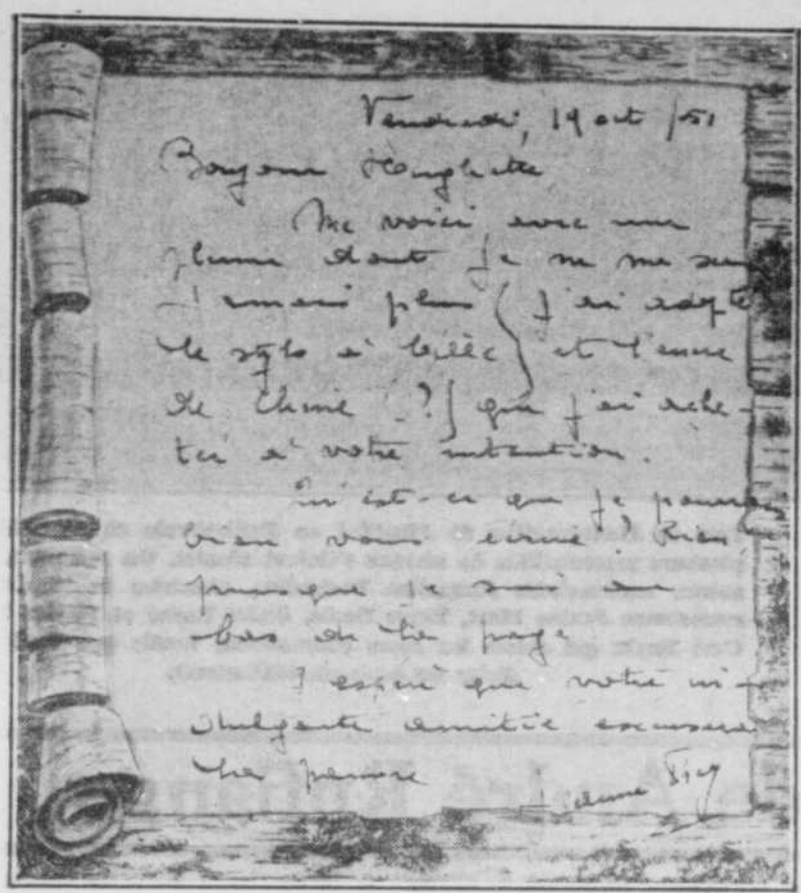 Vendredi, 19 oct /51
Bonjour Hughette
Me voici avec une
plume dont je ne me sers
jamais plus { j'ai adopté
le stylo à bille } et l'encre
de Chine (?) que j'ai ache-
tée à votre intention.
Qu'est-ce que je pourrais
bien vous écrire? Rien
puisque me voici au
bas de la page
J'espère que votre in-
dulgente amitié excusera
ma